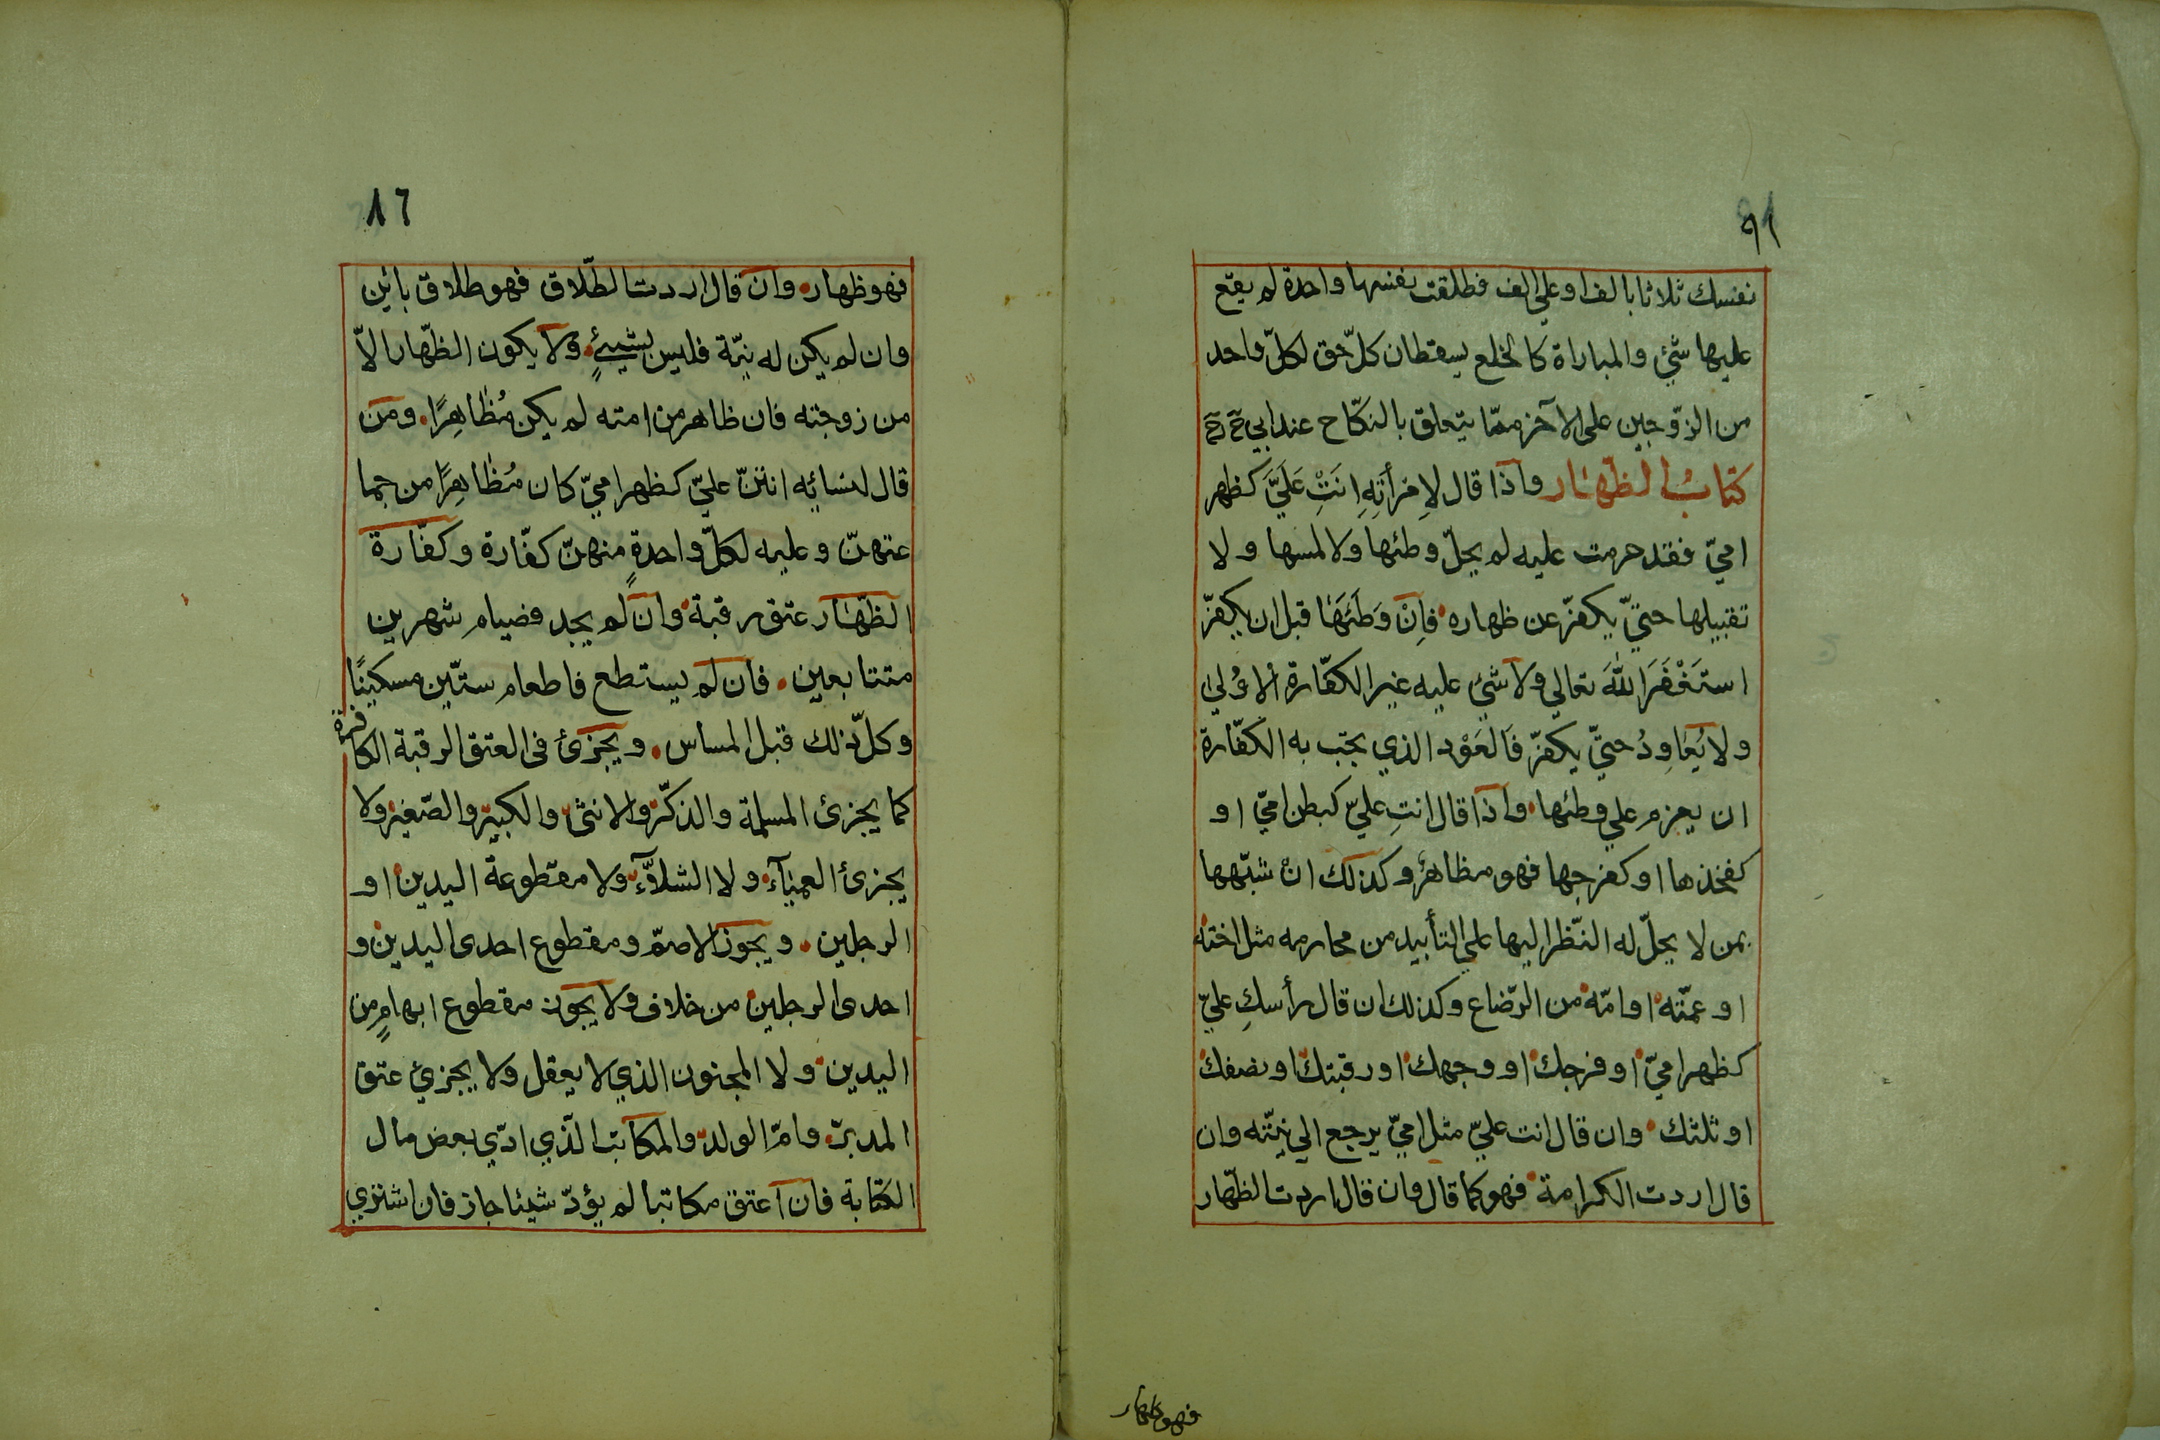 نفسك ثلاثا بالف او علي الف فطلقت نفسها واحدة لم يقع
عليها شئ والمباراة كالخلع يسقطان كلّ حق لكلّ واحد
من الزّوجين علي الآخر ممّا يتعلق بالنكّاح عند ابي
كتابُ الظّهار واذا قال لاِمْرأتِهِ انتِ عَلَيَّ كظهر
اميّ فقد حرمت عليه لم يحلّ وطئها ولا لمسها ولا
تقبيلها حتيّ يكفرّ عن ظهاره فاِنْ وَطَئَهَا قبل ان يكفرّ
استَغْفَرَ اللهَ تعالي ولا شئ عليه غير الكفّارة الاوُلي
ولا يُعَاوِدُ حتيّ يكفرّ فَالعَوْد الذي يجب به الكفّارة
ان يعزم علي وطئها واذا قال انتِ عليّ كبطن اميّ او
كفخذها او كفرجها فهو مظاهرٌ وكذلك انْ شبّهها
بمن لا يحلّ له النّظر اليها علي التأبيد من محارمه مثل اخته
او عمّته او امّه من الرّضاع وكذلك ان قال رأسكِ عليّ
كظهر اميّ او فرجك او وجهك او رقبتك او نصفك
او ثلثك وان قال انت عليّ مثل اميّ يرجع الي نيّته وان
قال اردت الكرامة فهو كما قال وان قال اردت الظّهار
فهو ظهار
٨٦
فهو ظهار وان قال اردت الطّلاق فهو طلاق بائن
وان لم يكن له نيّة فليس بشيئٍ ولا يكون الظّهار الاّ
من زوجته فان ظاهر من امته لم يكن مُظَاهِرًا ومن
قال لنسائِه انتنّ عليّ كظهر اميّ كان مُظَاهِرًا من جما
عتهنّ وعليه لكلّ واحدةٍ منهنّ كفّارة وكفّارة
الظّهار عتق رقبة وان لم يجد فصيام شهرين
متتابعين فان لم يستطع فاطعام ستّين مسكينًا
وكلّ ذلك قبل المساس ويجزئ فى العتق الرقبة الكافرة
كما يجزئ المسلمة والذكّر والانثى والكبير والصّغير ولا
يجزئ العمياَء ولا الشلاَّء ولا مقطوعة اليدين او
الرجلين ويجوز الاصمّ ومقطوع احدى اليدين و
احدى الرجلين من خلاف ولا يجوز مقطوع ابهامٍ من
اليدين ولا المجنون الذي لا يعقل ولا يجزئ عتق
المدبرّ وامّ الولد والمكاتب الّذي ادّي بعض مال
الكتابة فان اعتق مكاتبا لم يؤدّ شيئا جاز فان اشتري